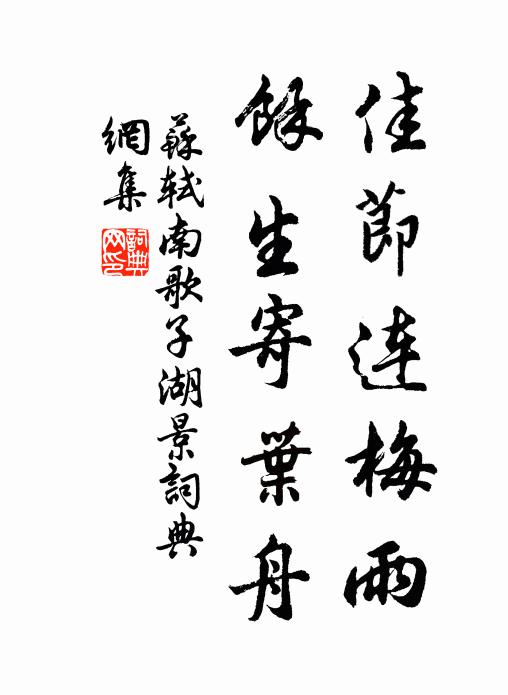 佳節連梅雨
餘生寄葉舟
蘇軾南歌子湖景詞典
網集
詞典
网印